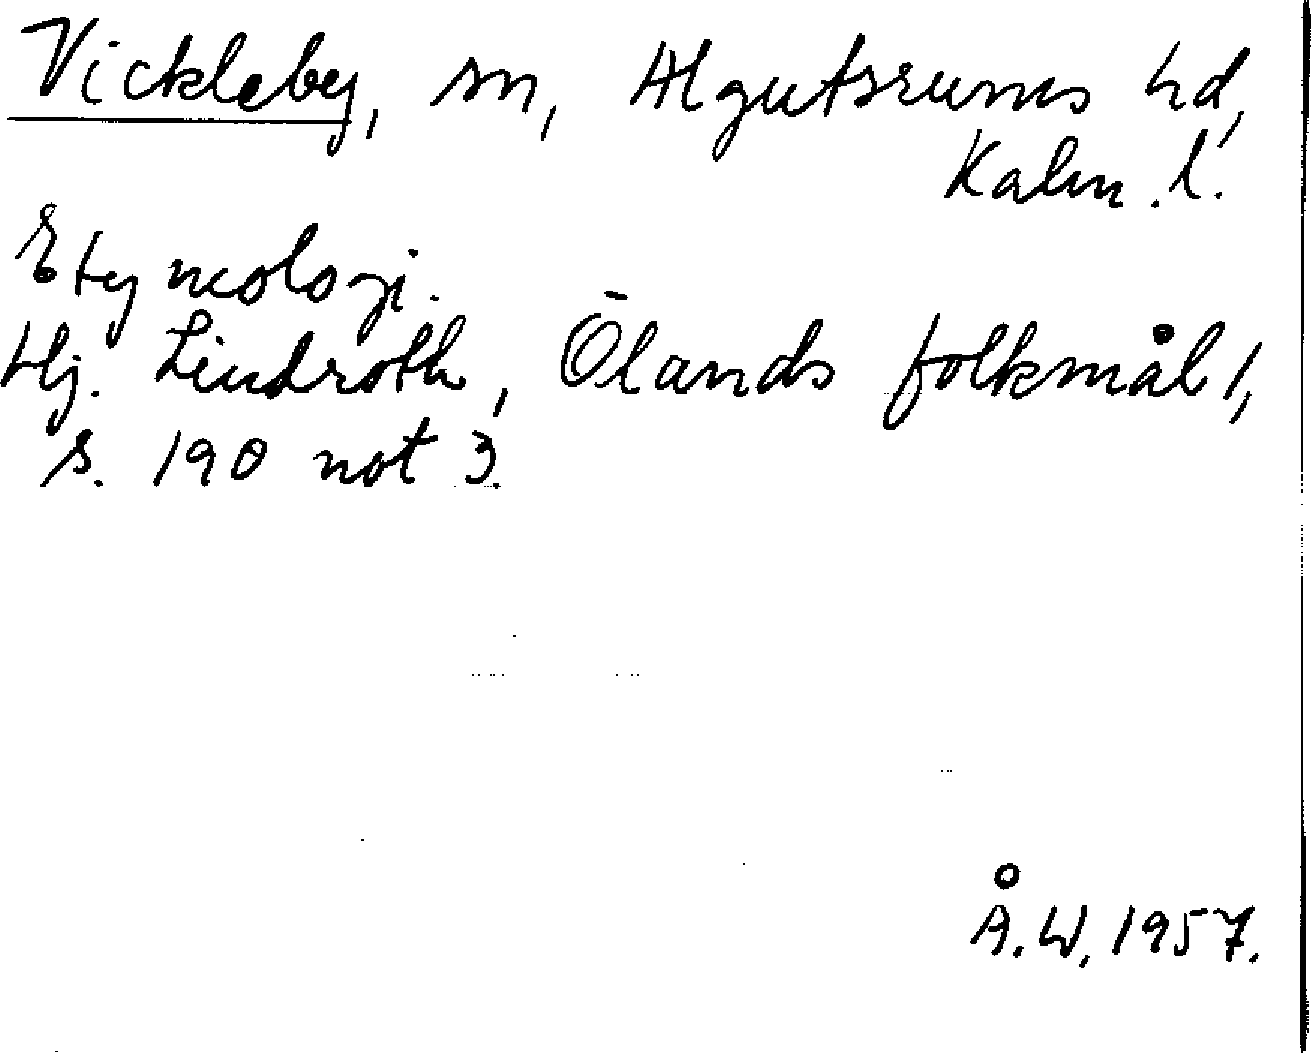 Vickleby, sn, Algutsrums hd,
Kalm. l.
Etymologi.
Hj. Lindroth, Ölands folkmål 1,
s. 190 not 3.
Å. W. 1957.